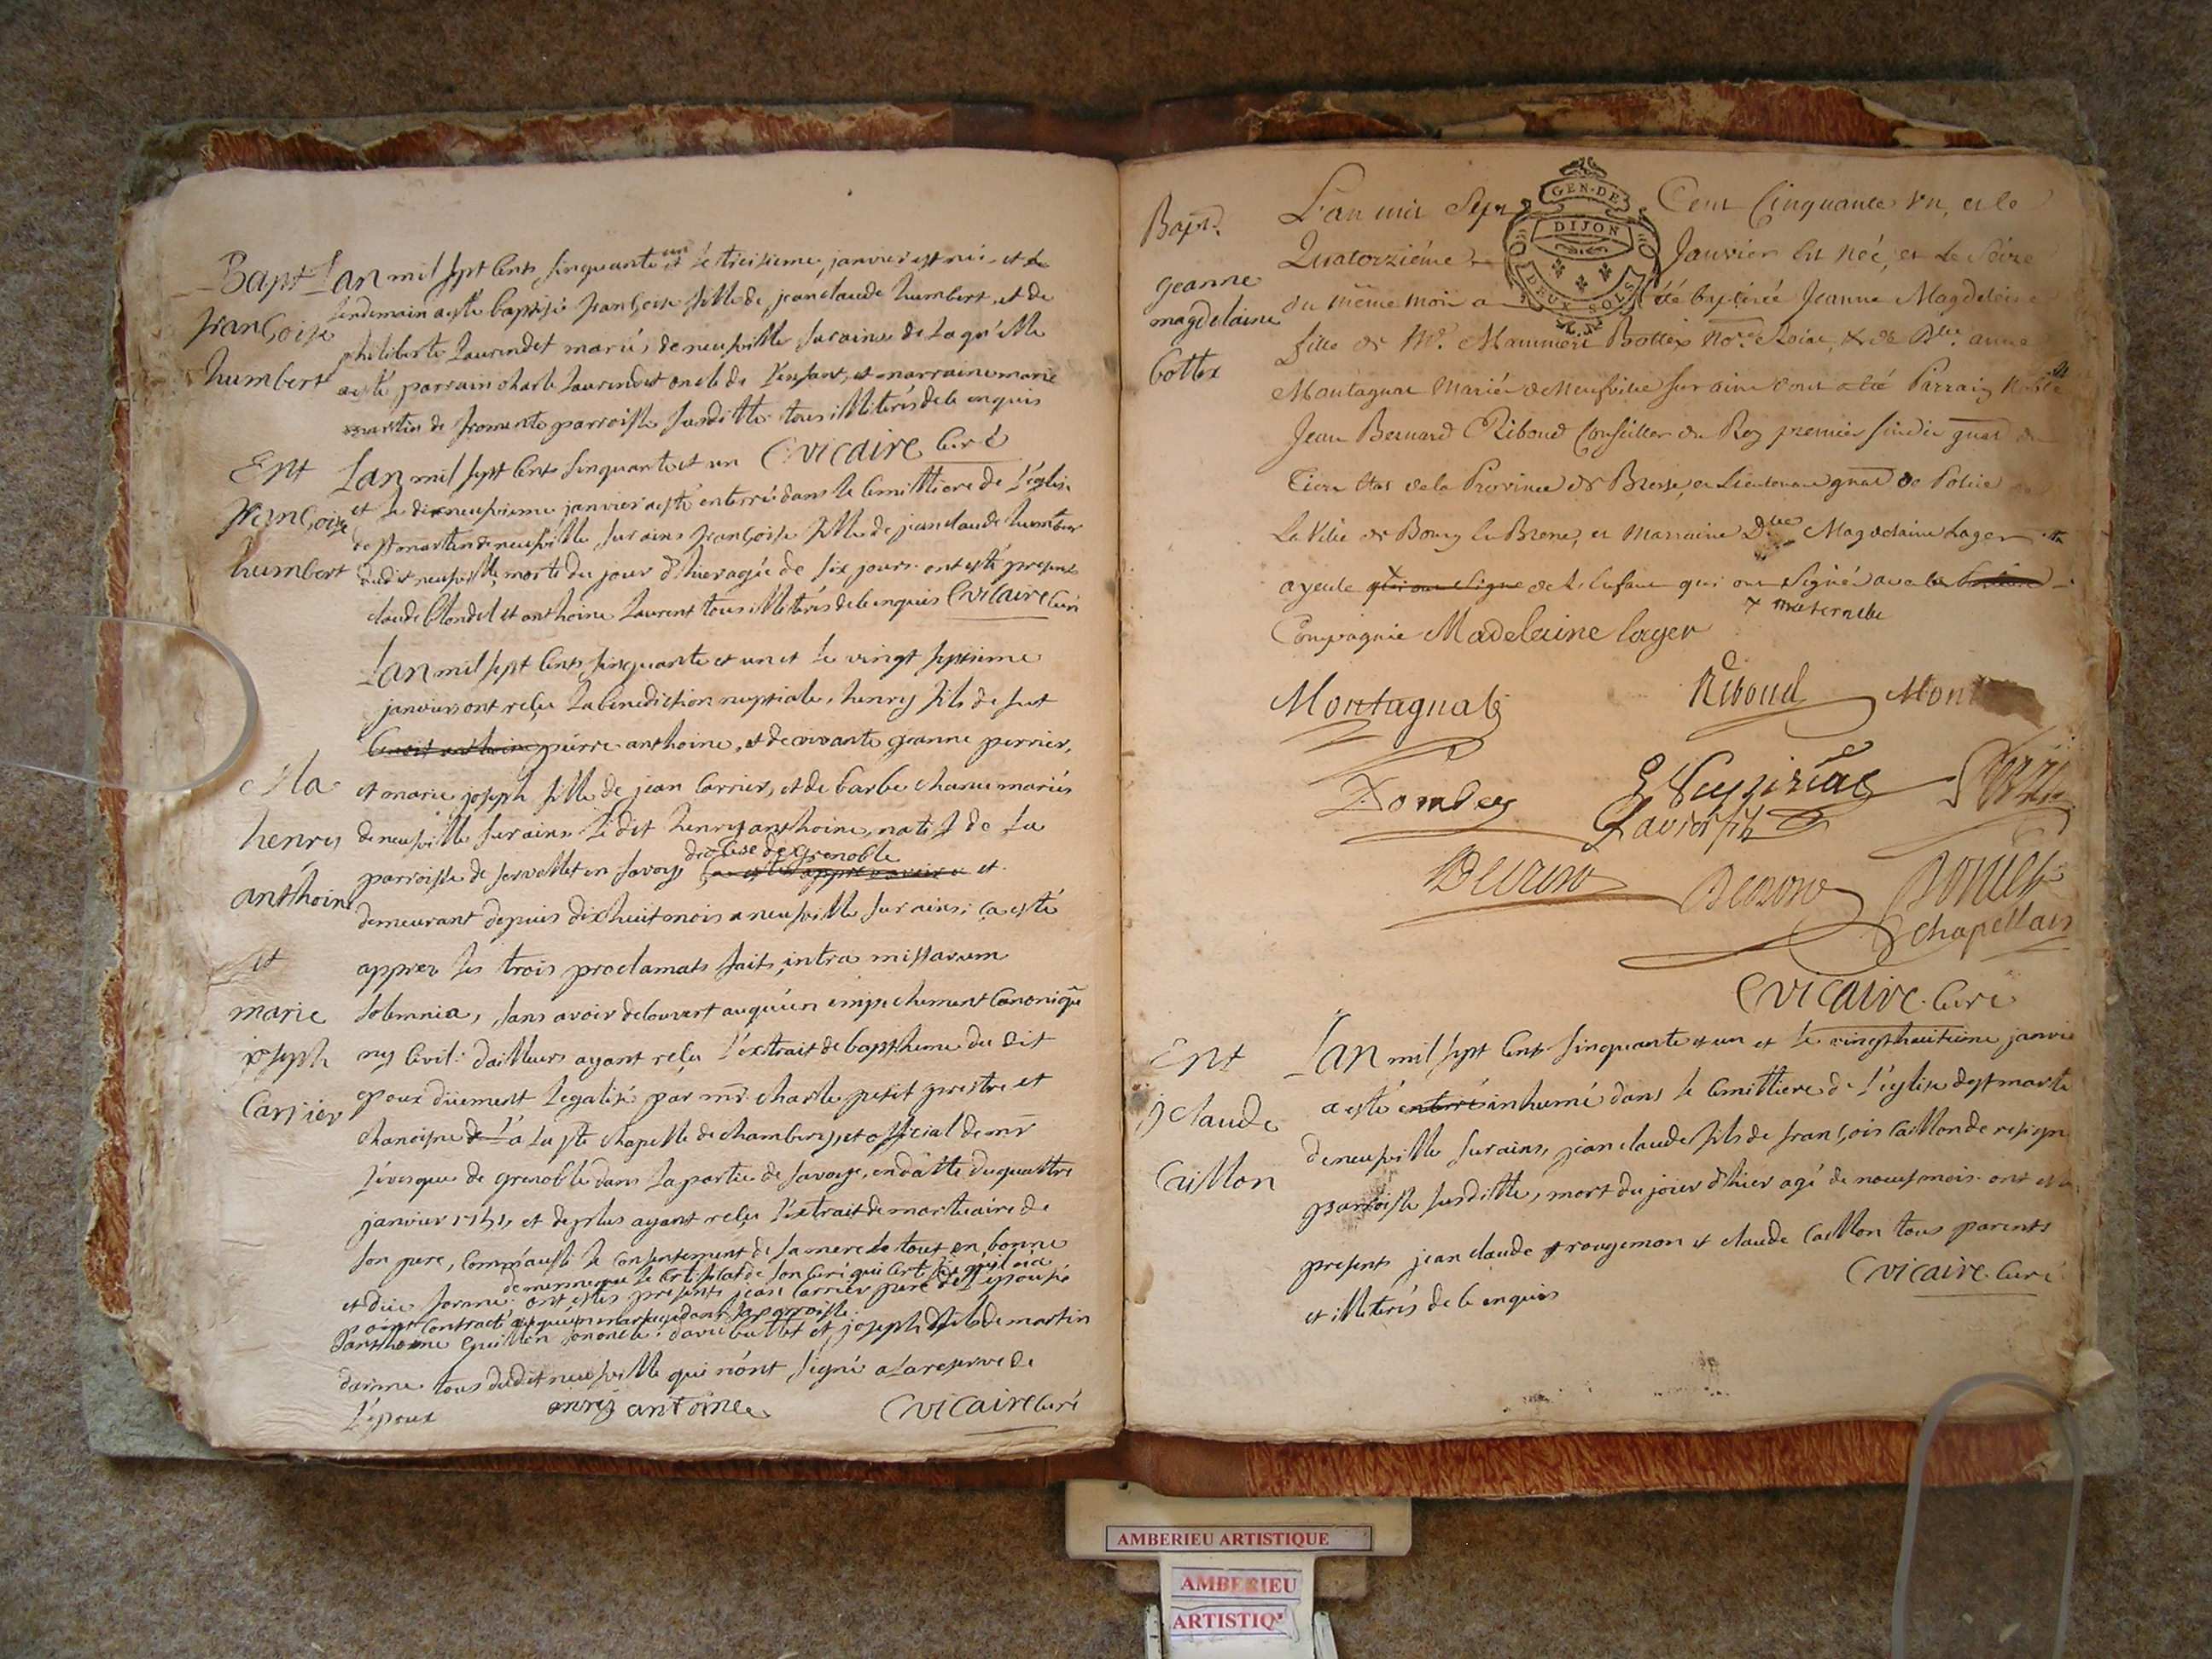 Bapt
françoise
humbert
Lan mil sept cents sinquante et un et le treisieme janvier est née et le
lendemain a esté baptisée françoise fille de jean claude humbert, et de
philiberte Laurendet mariés de neufville sur ains de laquelle
a esté parrain charle Laurendet oncle de l'enfant, et marraine marie
martin de fromente parroisse susditte tous illiterés de ce enquis
Cvicaire Curé
Ent
françoise
humbert
Lan mil sept cents sinquante et un
et le dixneufvieme janvier a esté enterrée dans le cimittiere de l'église
de st martin de neufville sur ains françoise fille de jean claude humbert
dudit neufville morte du jour d'hier agée de six jours ont esté presents
claude blondel et anthoine Laurent tous illiterés de ce enquis Cvicaire Curé
Ma
henry
anthoine
et
marie
joseph
Carrier
Lan mil sept cents sinquante et un et le vingt septieme
janvier ont reçu la benediction nuptiale, henry fils de fut
pierre anthoine, et de vivante jeanne perrier,
et marie joseph fille de jean Carrier, et de barbe charue mariés
de neufville sur ains le dit henry anthoine, natif de la
diocese de grenoble
parroisse de servollet en Savoye et
demeurant depuis dix huit mois a neufville sur ains; ca esté
apprez les trois proclamats faits, intra missarum
Solemnia, sans avoir decouvert auqu'un empechement Canonique
ny Civil: dailleurs ayant reçu l'extrait de baptheme du dit
epoux düement legalisé par mr charle petit prestre et
chanoine de la ste chapelle de chambery, et official de mr
l'evesque de grenoble dans la partie de Savoye, en datte du quattre
janvier 1751, et de plus ayant reçu l'extrait de mortuaire de
son pere, comm'aussi le consentement de sa mere le tout en bonne
de mesme que le certificat de son Curé qui certifie qu'il n'a
et düe forme: ont estés presents jean Carrier pere de l'epousée
point contracté auqu'un mariage dans sa parroisse.
anthoine Guillon son oncle: david bullet et joseph fils de martin
darme tous dudit neufville qui n'ont signé a la reserve de
L'epoux
enrÿ antoine
Cvicaire Curé
Bapt.
jeanne
magdelaine
bottex
L'an mil Sept Cent Cinquante un, et le
Quatorziéme Janvier est Née, et Le Séize
du même mois a été baptisée Jeanne Magdeleine
fille de Mr. Mammert Bottex Nore. Roial, & de Dlle. anne
Montagnat Mariés de Neufville sur ains dont a été Parrain Noble
Jean Bernard Riboud Conseiller du Roy premier sindic gnal du
Tiers Etat de la Province de Bresse, et Lieutenant gnal de Police de
La Ville de Bourg En Bresse, et Marraine Dlle Magdelaine Lager
ayeule qui ont signé de L'Enfant qui ont Signés avec la
x maternelle
Compagnie Madeleine lager
Montagnat
Riboud
Mont
Dombey
Chapellain
Cvicaire Curé
Ent
j claude
Caillon
Lan mil sept cents sinquante et un et le vingt huitieme janvie
a esté enterré inhumé dans le cimittiere de l'église de st martin
de neufville sur ains, jean claude fils de françois Caillon de resign
parroisse susditte, mort du jour d'hier agé de neuf mois ont esté
presents jean claude rougemon et claude Caillon tous parents
et illiterés de ce enquis
Cvicaire Curé
GEN. DE
DIJON
DEUX SOLS
AMBERIEU ARTISTIQUE
AMBERIEU
ARTISTIQ